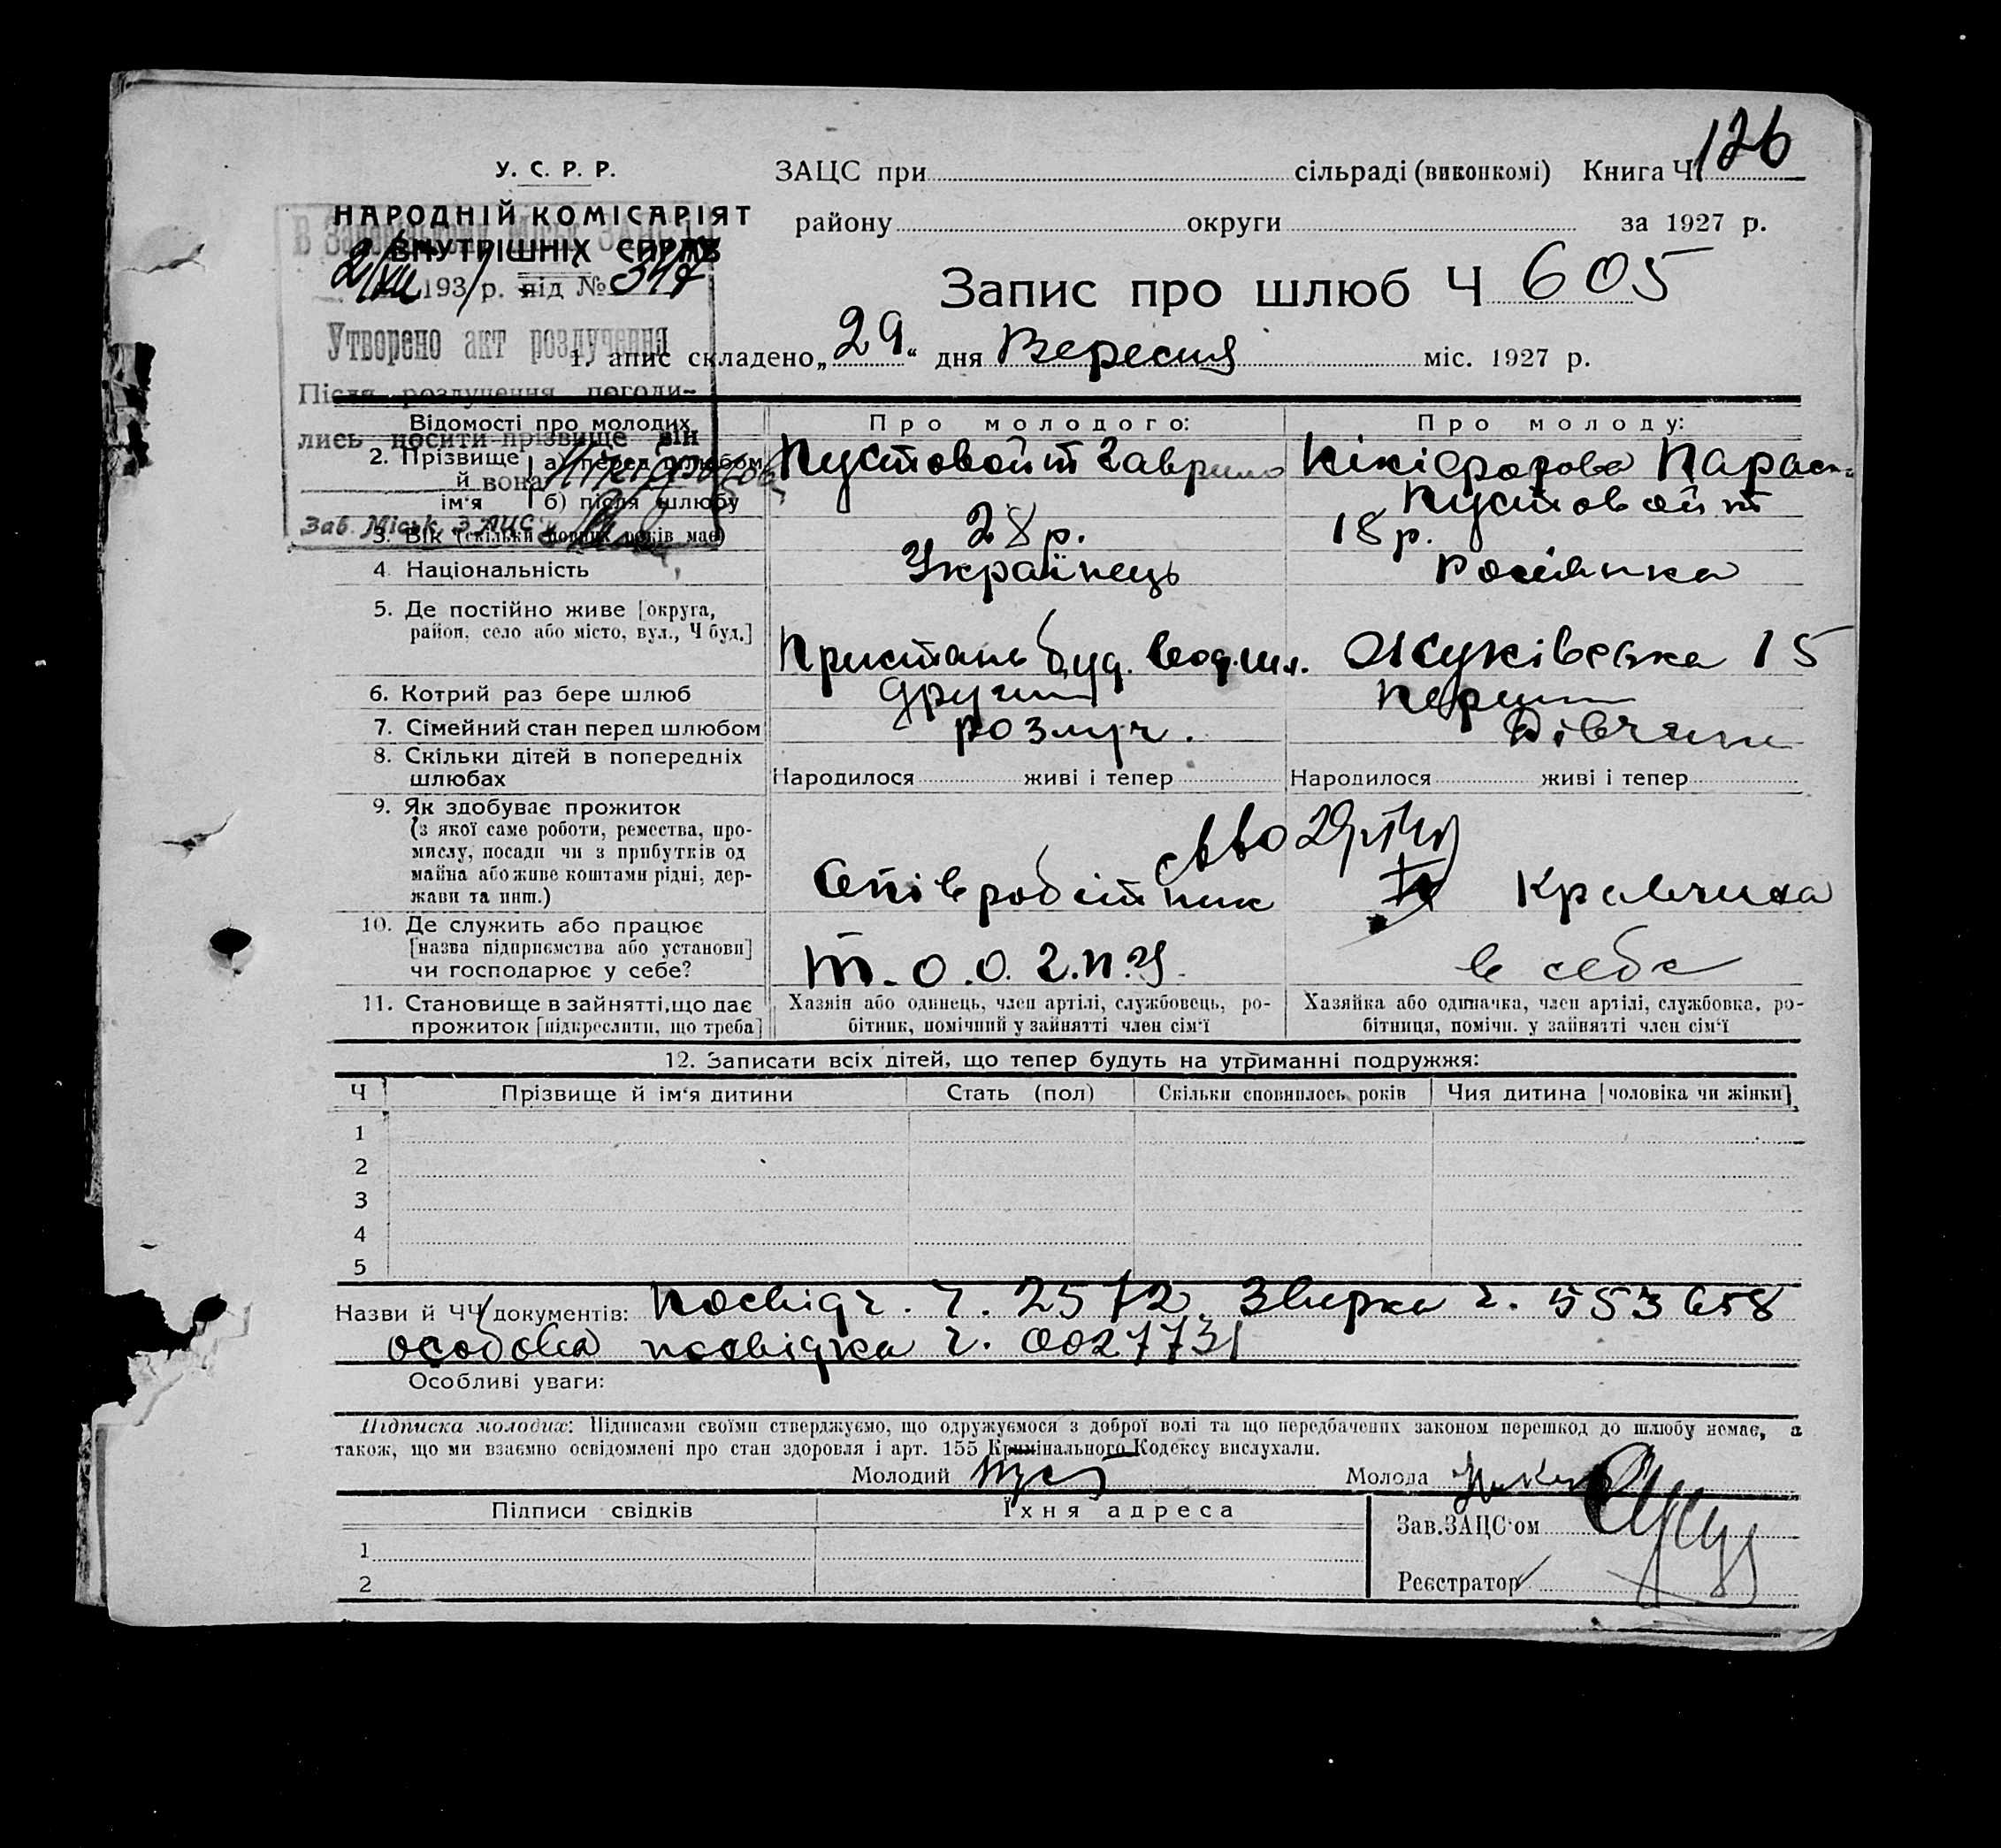 126
У. С. Р. Р.
ЗАЦС при сільраді (виконкомі) Книга Ч.
НАРОДНІЙ КОМІСАРІЯТ
ВНУТРІШНІХ СПРАВ
району округи за 1927 р.
2/XII 1931 р. під № 347
Запис про шлюб Ч 605
Утворено акт розлучення
1. апис складено „29“ дня Вересня міс. 1927 р.
Після розлучення погоди-
лись носити прізвище він
вона
Зав. Міськ. ЗАЦС'у
Відомості про молодих
Про молодого:
Про молоду:
2. Прізвище й ім'я
а) перед шлюбом
Пустовойт Гаврило
Нікіфорова Параск.
б) після шлюбу
Пустовойт
3. Вік (скільки повних років має)
28 р.
18 р.
4. Національність
Українець
Росіянка
5. Де постійно живе [округа,
район, село або місто, вул., Ч буд.]
Пристань буд.
Жуківська 15
6. Котрий раз бере шлюб
другий
Перший
7. Сімейний стан перед шлюбом
розлуч.
Дівчина
8. Скільки дітей в попередніх
шлюбах
Народилося живі і тепер
Народилося живі і тепер
9. Як здобуває прожиток
(з якої саме роботи, ремества, про-
мислу, посади чи з прибутків од
майна або живе коштами рідні, дер-
жави та инш.)
Співробітник
Кравчиха
10. Де служить або працює
[назва підприємства або установи]
чи господарює у себе?
Т.О.О. Г.П.У.
в себе
11. Становище в зайнятті, що дає
прожиток [підкреслити, що треба]
Хазяін або одинець, член артілі, службовець, ро-
бітник, помічний у зайнятті член сім'ї
Хазяйка або одиначка, член артілі, службовка, ро-
бітниця, помічн. у зайнятті член сім'ї
12. Записати всіх дітей, що тепер будуть на утриманні подружжя:
Ч Прізвище й ім'я дитини Стать (пол) Скільки сповнилось років Чия дитина [чоловіка чи жінки]
1
2
3
4
5
Назви й ЧЧ документів: Посвідч. ч. 2572. Звирка ч. 553658
особова посвідка ч. 0027731
Особливі уваги:
Підписка молодих: Підписами своїми стверджуємо, що одружуємося з доброї волі та що передбачених законом перешкод до шлюбу немає, а
також, що ми взаємно освідомлені про стан здоровля і арт. 155 Кримінального Кодексу вислухали.
Молодий Молода
Підписи свідків Їхня адреса
Зав. ЗАЦС'ом
1
2
Реєстратор